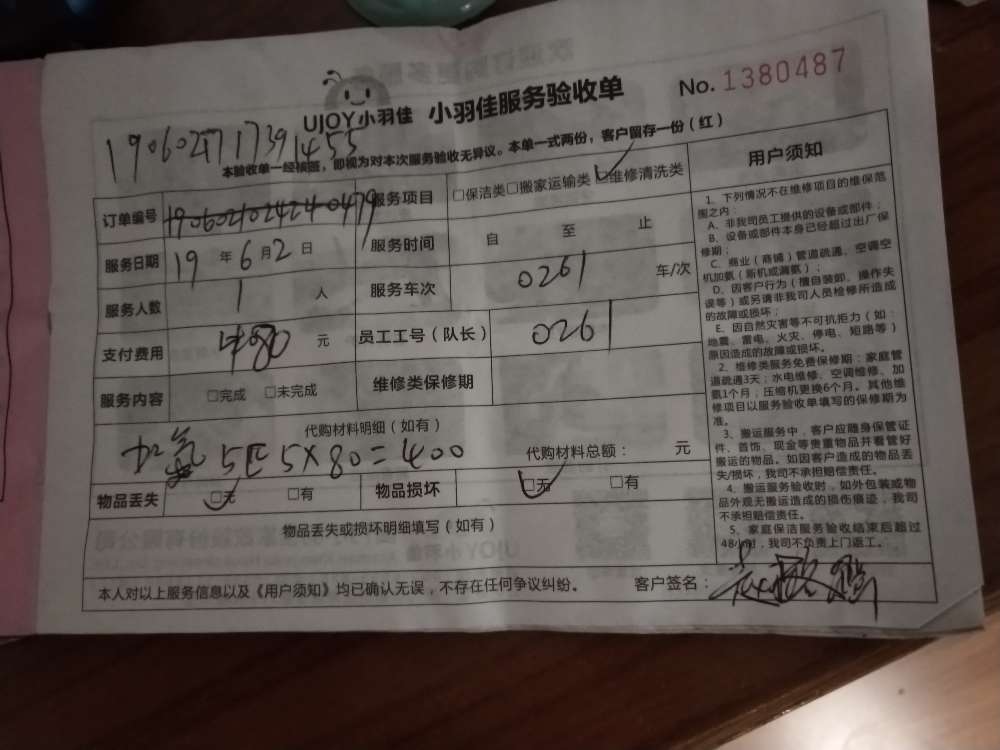 UJOY小羽佳 小羽佳服务验收单 No.1380487
本验收单一经核签，即视为对本次服务验收无异议。本单一式两份，客户留存一份（红）
订单编号 190602102424 0479
服务项目 □保洁类□搬家运输类□维修清洗类
服务日期 19 年 6 月 2 日
服务时间 自 至 止
服务人数 1 人
服务车次 0261 车/次
支付费用 480 元
员工工号（队长） 0261
服务内容 □完成 □未完成
维修类保修期
代购材料明细（如有）
加氨 5匹 5×80=400
代购材料总额： 元
物品丢失 □无 □有
物品损坏 □无 □有
物品丢失或损坏明细填写（如有）
本人对以上服务信息以及《用户须知》均已确认无误，不存在任何争议纠纷。 客户签名：
用户须知
1、下列情况不在维修项目的维保范
围之内：
A、非我司员工提供的设备或部件；
B、设备或部件本身已经超过出厂保
修期；
C、商业（商铺）管道疏通、空调空
机加氨（新机或漏氨）；
D、因客户行为（擅自装卸、操作失
误等）或另请非我司人员检修所造成
的故障或损坏；
E、因自然灾害等不可抗拒力（如：
地震、雷电、火灾、停电、短路等）
原因造成的故障或损坏。
2、维修类服务免费保修期：家庭管
道疏通3天；水电维修、空调维修、加
氨1个月；压缩机更换6个月。其他维
修项目以服务验收单填写的保修期为
准。
3、搬运服务中，客户应随身保管证
件、首饰、现金等贵重物品并看管好
搬运的物品。如因客户造成的物品丢
失/损坏，我司不承担赔偿责任。
4、搬运服务验收时，如外包装或物
品外观无搬运造成的损伤痕迹，我司
不承担赔偿责任。
5、家庭保洁服务验收结束后超过
48小时，我司不负责上门返工。